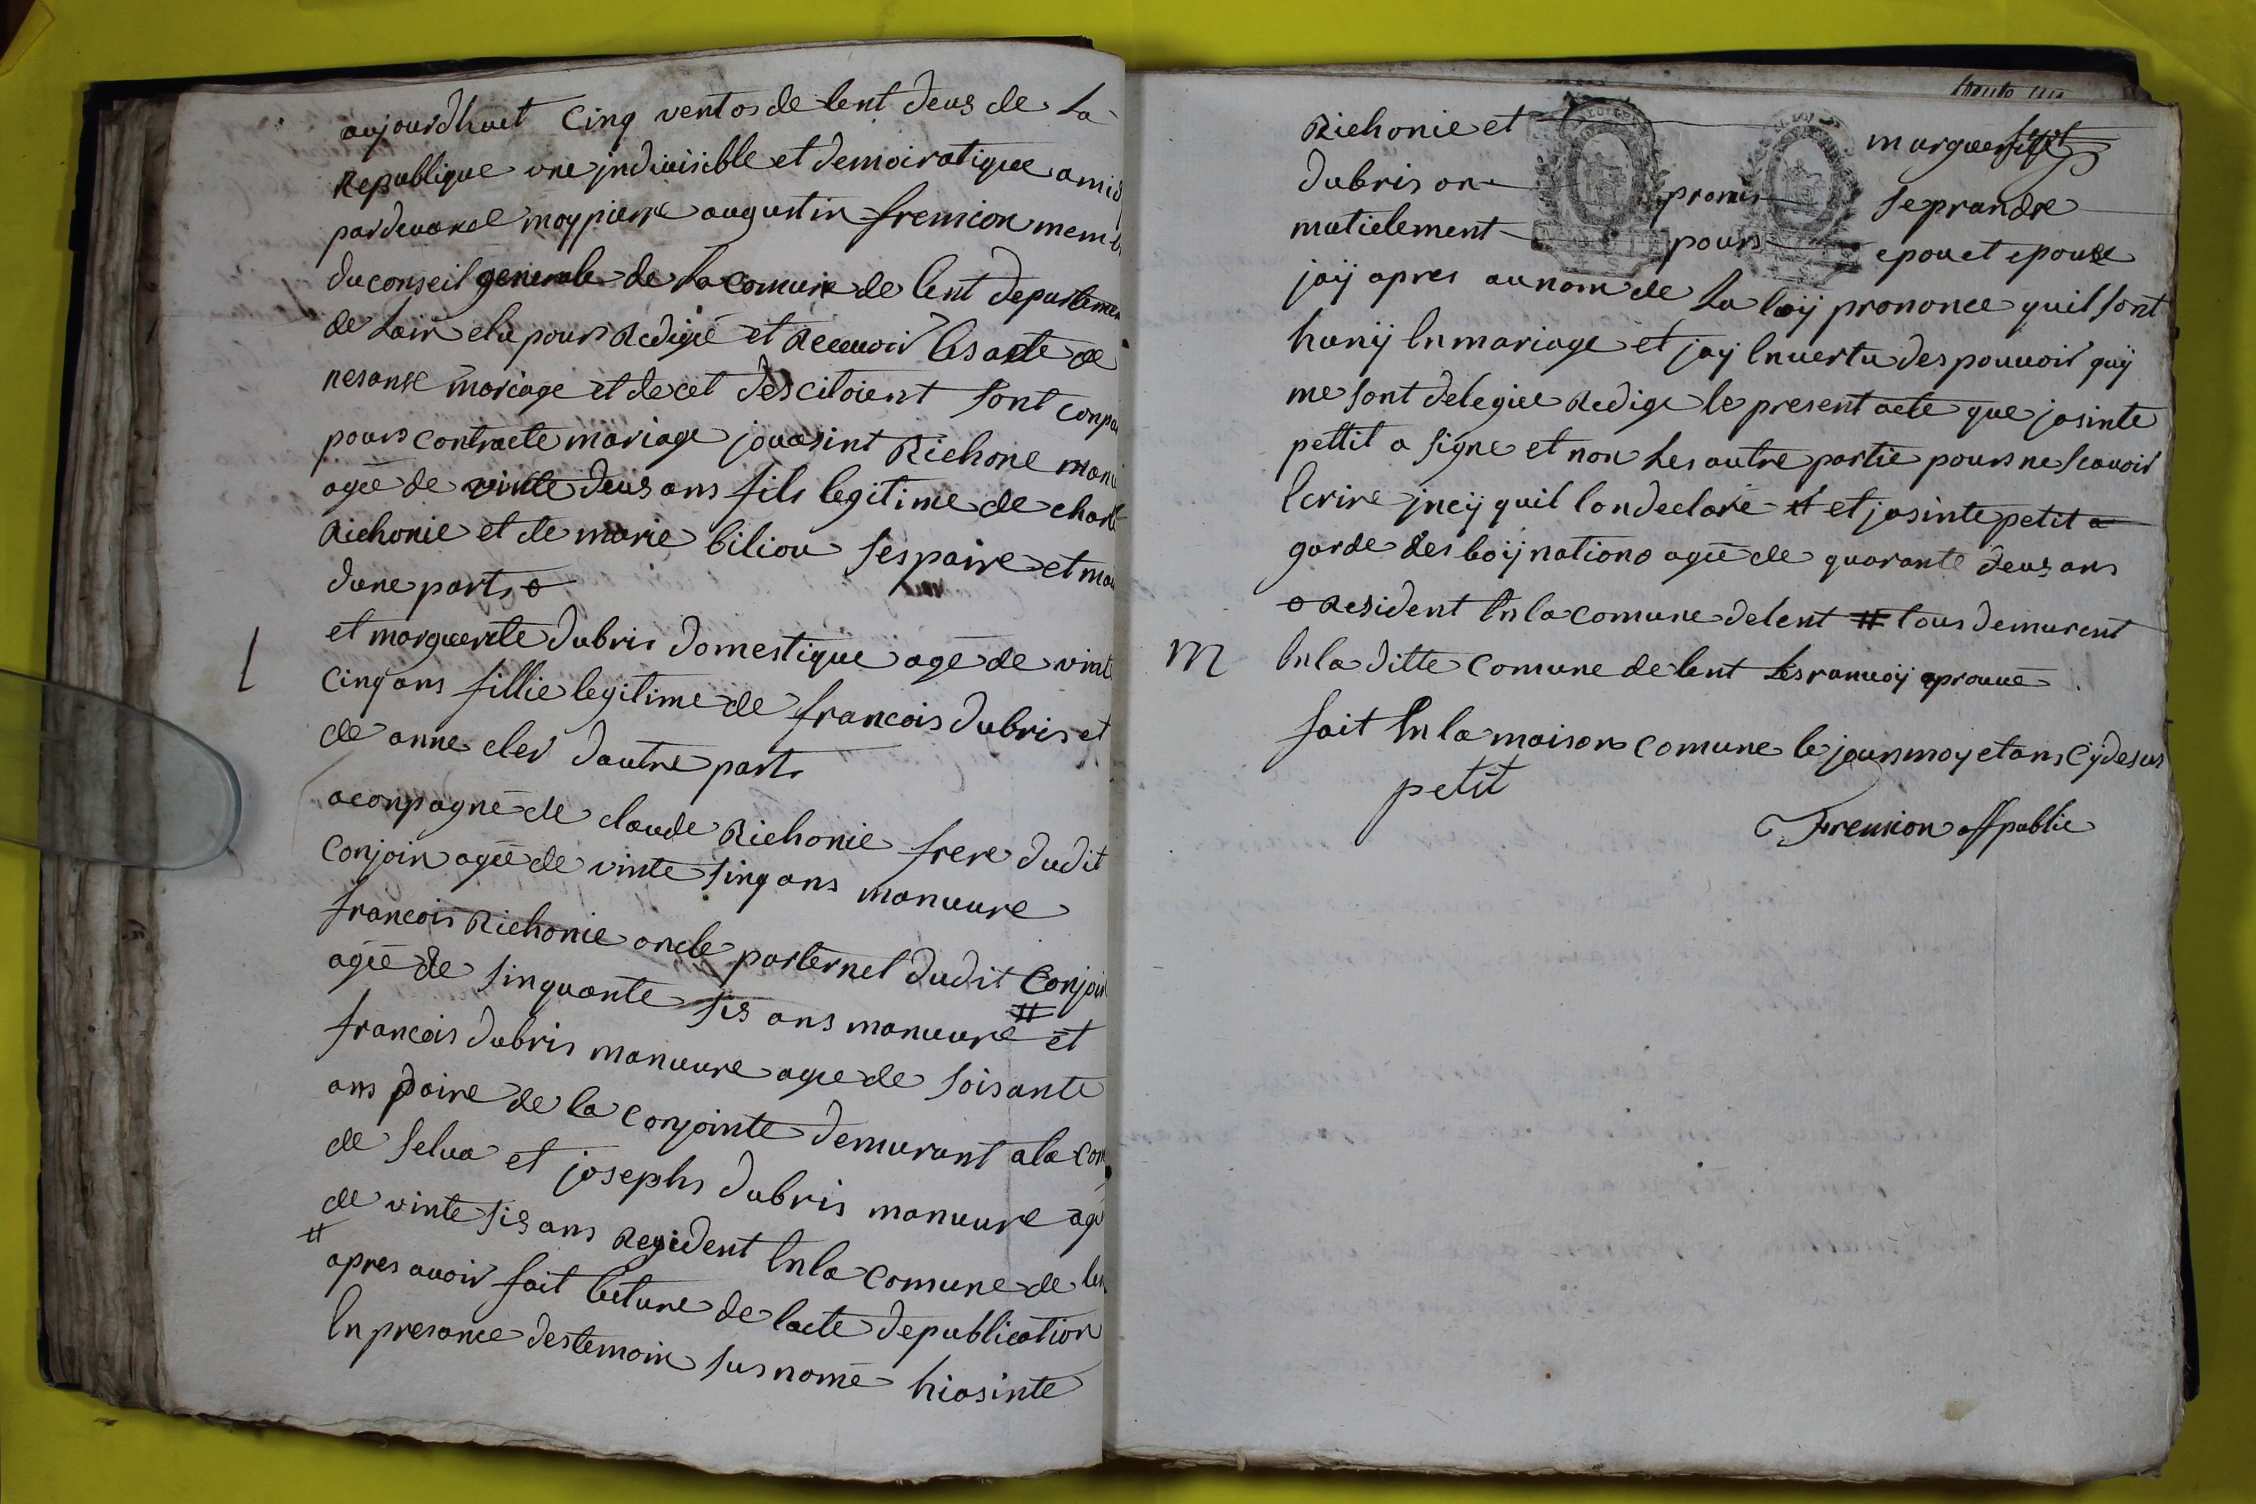 aujourdhuet Cinq ventos de lent deus de La
Republique une jndiuisible et demoiratique amis
pardeuakel moy pierre augustin fremion memb
du conseil generale de La comune de lent departemen
de Lain elu pour Redigié et Receuoir les acte de
nesanse mariage et decet des citoient sont conpa
pours contracte mariage jouasint Richone manu
agée de vinte deus ans fils legitime de charle
Richonie et de marie biliou ses paire et ma
dune parts o
et marguerite dubris domestique agé de vint
cinq ans fillie legitime de francois dubris et
de anne cler dautre parts
aconpagné de claude Richonie frere dudit
Conjoin agée de vinte sinq ans manuure
francois Richonie oncle parternel dudit Conjoin
agée de sinquante sis ans manuure # et
francois dubris manuure agee de soisante
ans paire de la conjointe demurant a la com
de selua et josephs dubris manuure agé
de vinte sis ans Resident En la comune de len
# apres auoir fait lecture de lacte de publication
En presance des temoin sus nomé hiasinte
Richonie et margueritte
dubris on promis se prandre
mutielement pours epou et epouse
jaÿ apres au nom de La loÿ prononce quil sont
hunÿ En mariage et jaÿ En uertu des pouuoir quÿ
me sont delegiee Redige le present acte que jasinte
pettit a signe et non Les autre partie pours ne scauoir
Ecrire jncÿ quil lon declaré # et jasinte petit
garde des boÿ nationo agée de quarante deus ans
o Resident En la comune de lent # tous demurent
En la ditte comune de lent Les ranuoÿ aprouué
fait En la maison comune le jour moy et ans Cÿ desus
petit
Fremion off public